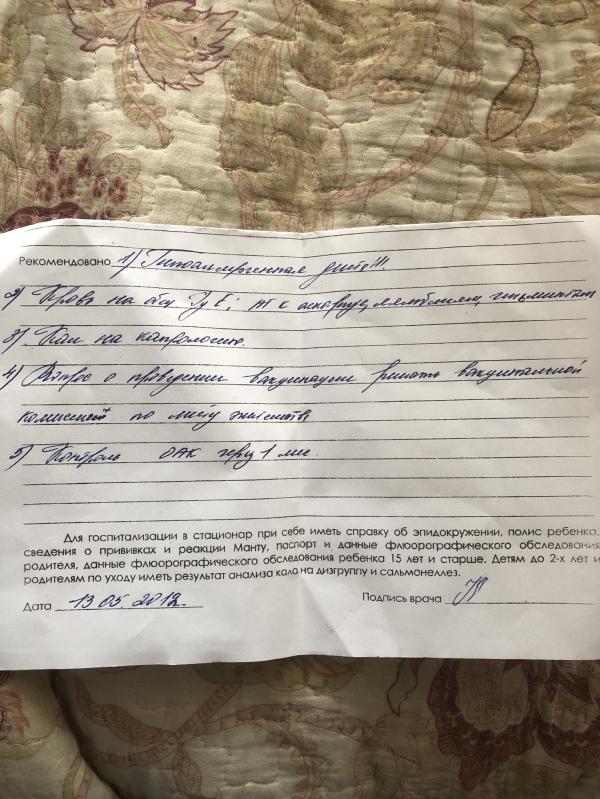 Рекомендовано 1) Гипоаллергенная диета!!!
2) Кровь на общ. IgE; АТ к аскариде, лямблиям, гельминтам
3) Кал на копрологию.
4) Вопрос о проведении вакцинации решать вакцинальной
комиссией по месту жительства
5) Контроль ОАК через 1 мес.
Для госпитализации в стационар при себе иметь справку об эпидокружении, полис ребенка,
сведения о прививках и реакции Манту, паспорт и данные флюорографического обследования
родителя, данные флюорографического обследования ребенка 15 лет и старше. Детям до 2-х лет и
родителям по уходу иметь результат анализа кала на дизгруппу и сальмонеллез.
Дата 13.05.2019г. Подпись врача